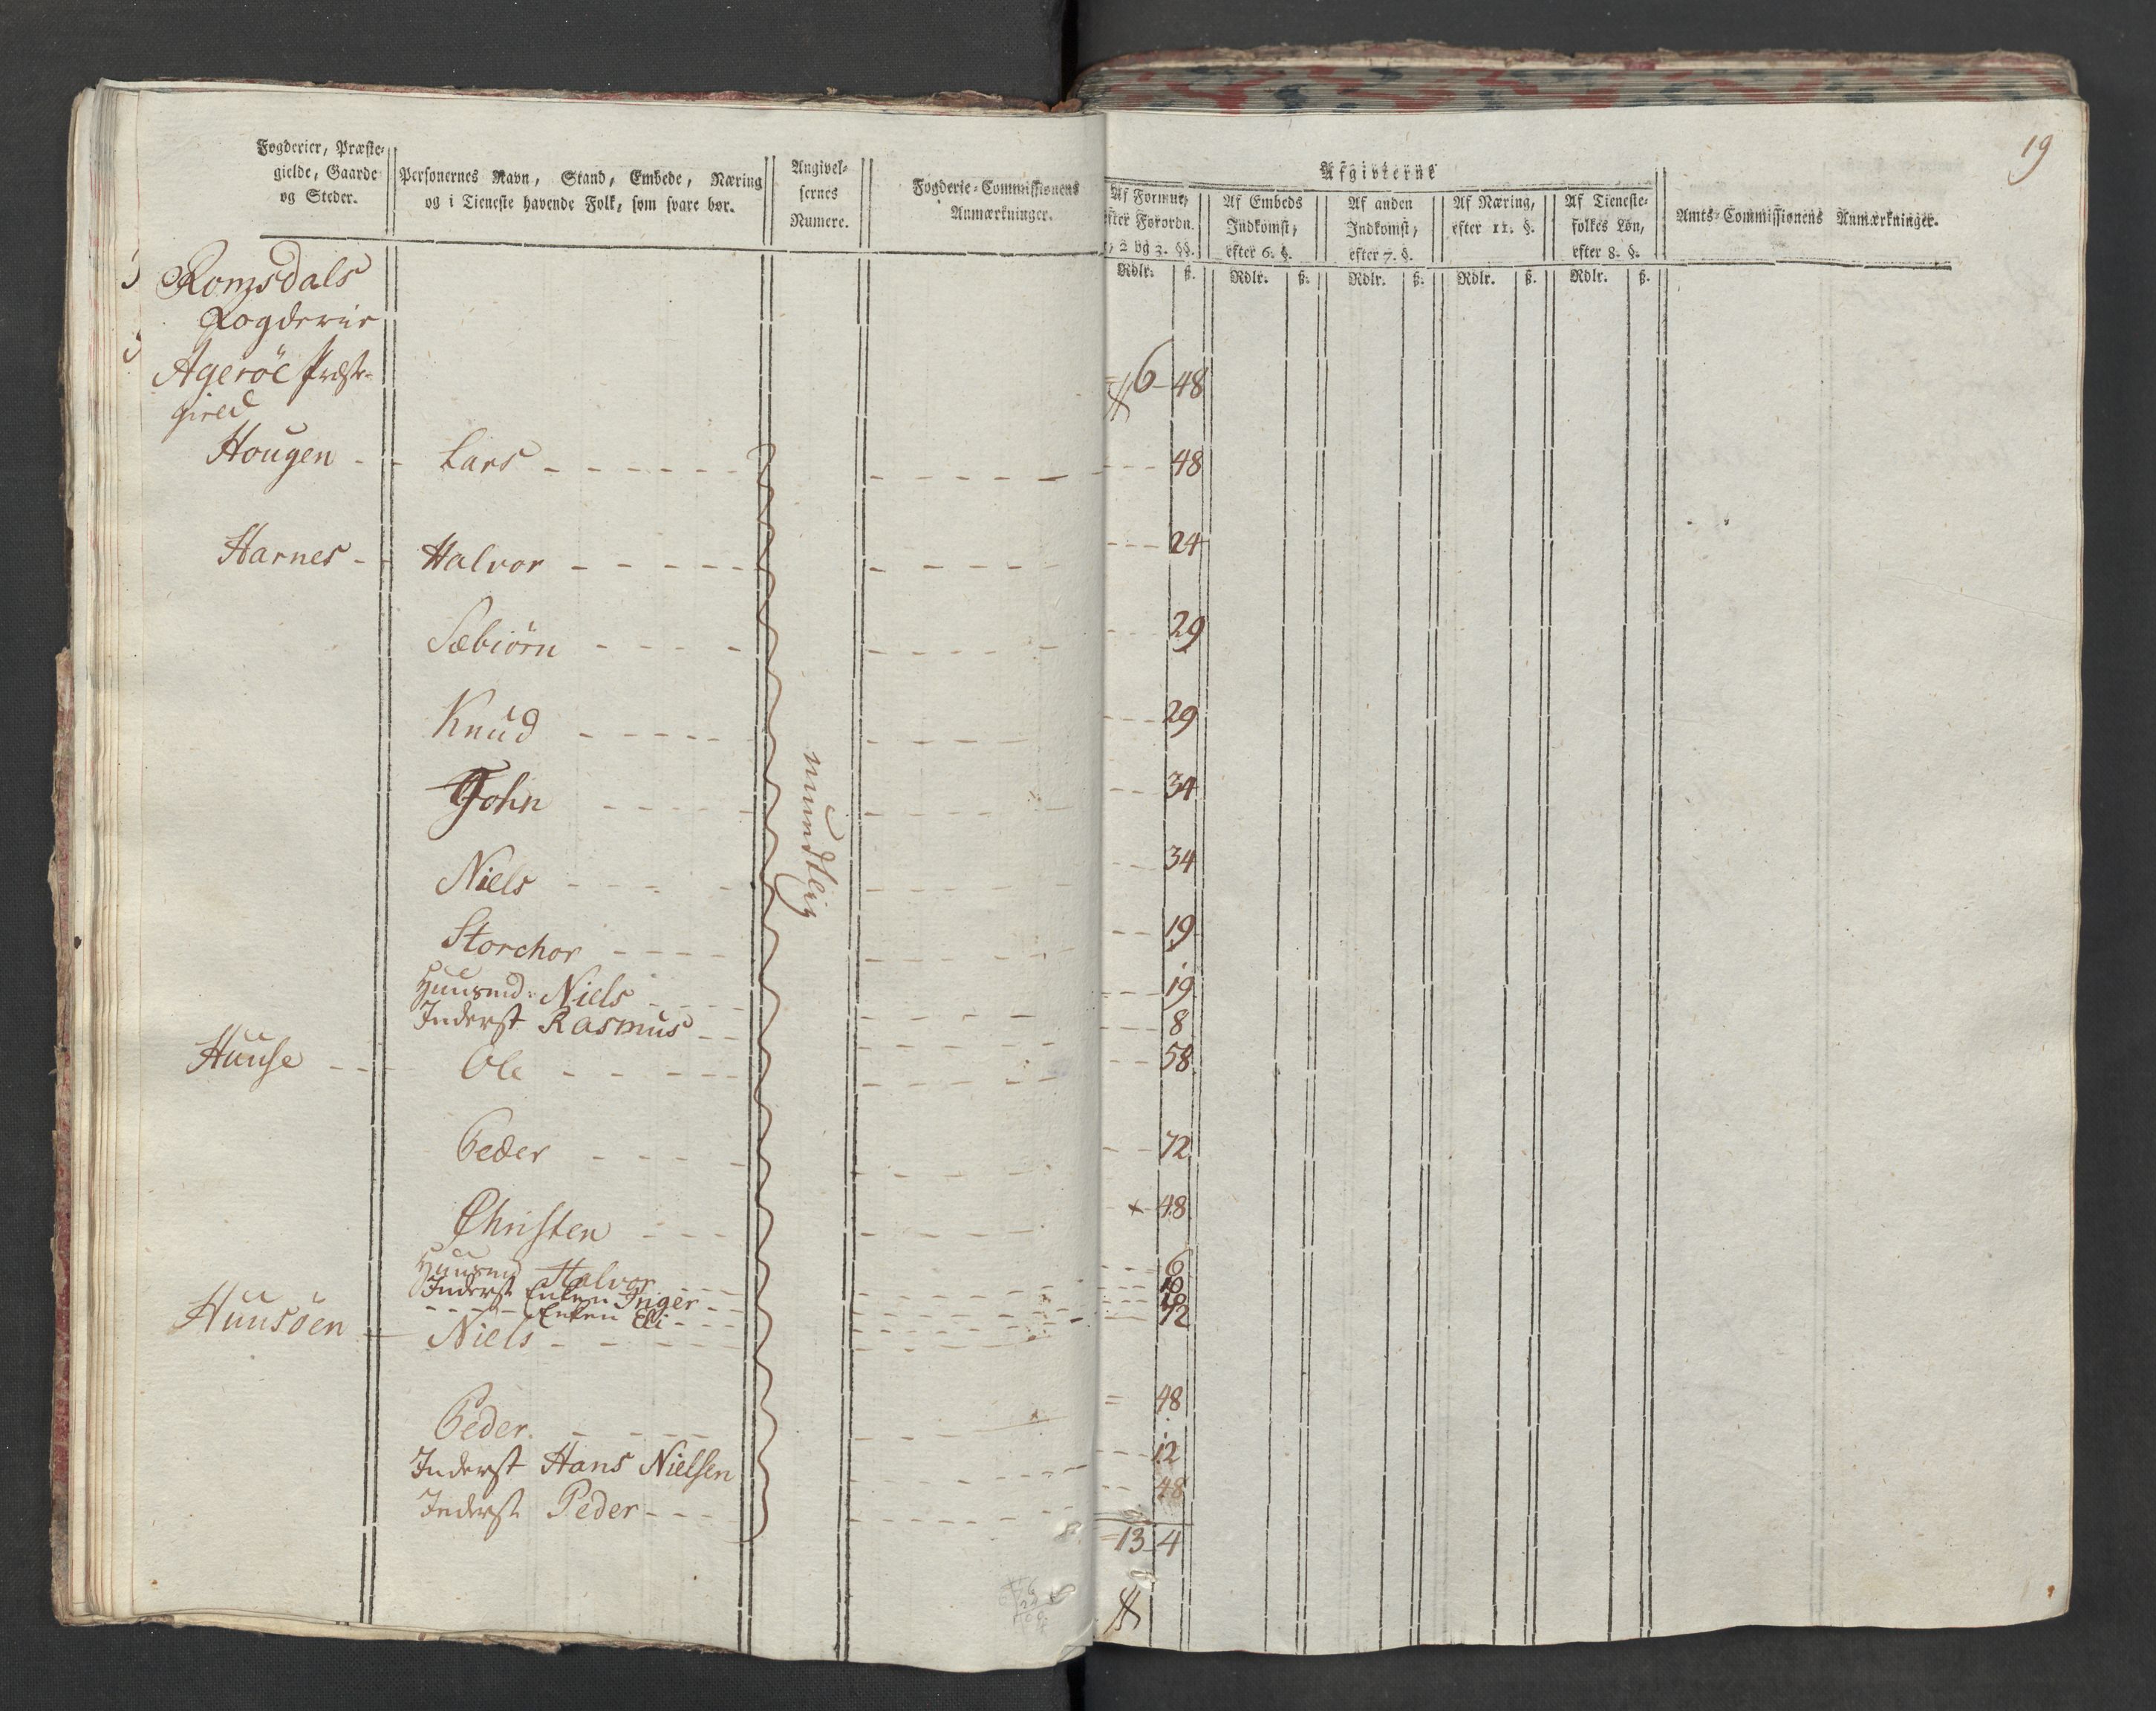 19
Fogderier, Præste-
gielde, Gaarde
og Steder.
Personernes Navn, Stand, Embede, Næring
og i Tieneste havende Folk, som svare bør.
Angivel-
sernes
Numere.
Fogderie-Commissionens
Anmærkninger.
Afgivterne
Af Formue,
efter Forordn.
1, 2 og 3. §§.
Af Embeds
Indkomst,
efter 6. §.
Af anden
Indkomst,
efter 7. §.
Af Næring,
efter 11. §.
Af Tieneste-
folkes Løn,
efter 8. §.
Amts-Commissionens Anmærkninger.
Rdlr. ß. Rdlr. ß. Rdlr. ß. Rdlr. ß. Rdlr. ß.
Romsdals
Fogderie
Agerøe Præste-
gield 6 48
Hougen - - Lars - - - - - - 48
Harnes - - Halvor - - - - - 24
Sæbiörn - - - - 29
Knud - - - - - 29
John - - - - 34
Niels - - - - 34
Storchor - - - - 19
Huusmd: Niels - - - 19
Inderst Rasmus - - 8
Huuse - - Ole - - - - - 58
Peder - - - - 72
Christen - - - + 48
Huusmd Halvor - - 6
Inderst Enken Inger - - 10
- - - - Enken Eli - - -
Huusöen - Niels - - - - - 72
Peder - - - - = 48
Inderst Hans Nielsen 12
Inderst Peder - - - 48
mundtlig
= 13 4